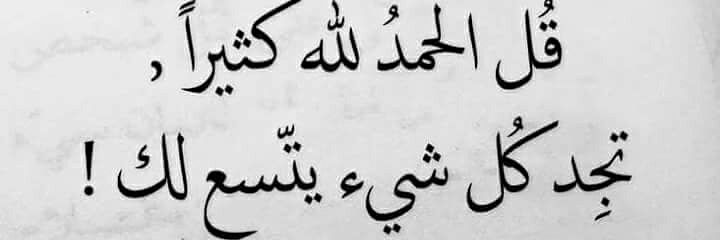 قُل الحمدُ لله كثيراً ,
تجِد كُل شيء يتّسع لك !